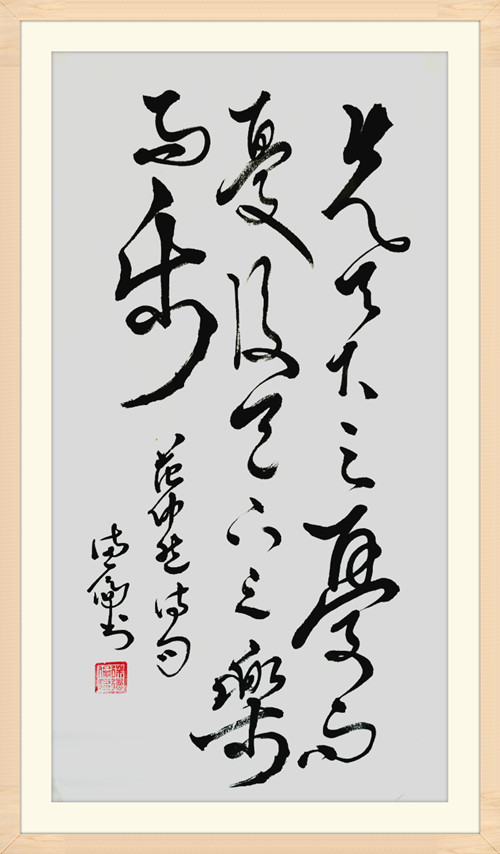 先天下之憂而
憂後天下之樂
而樂
范仲淹诗句
书